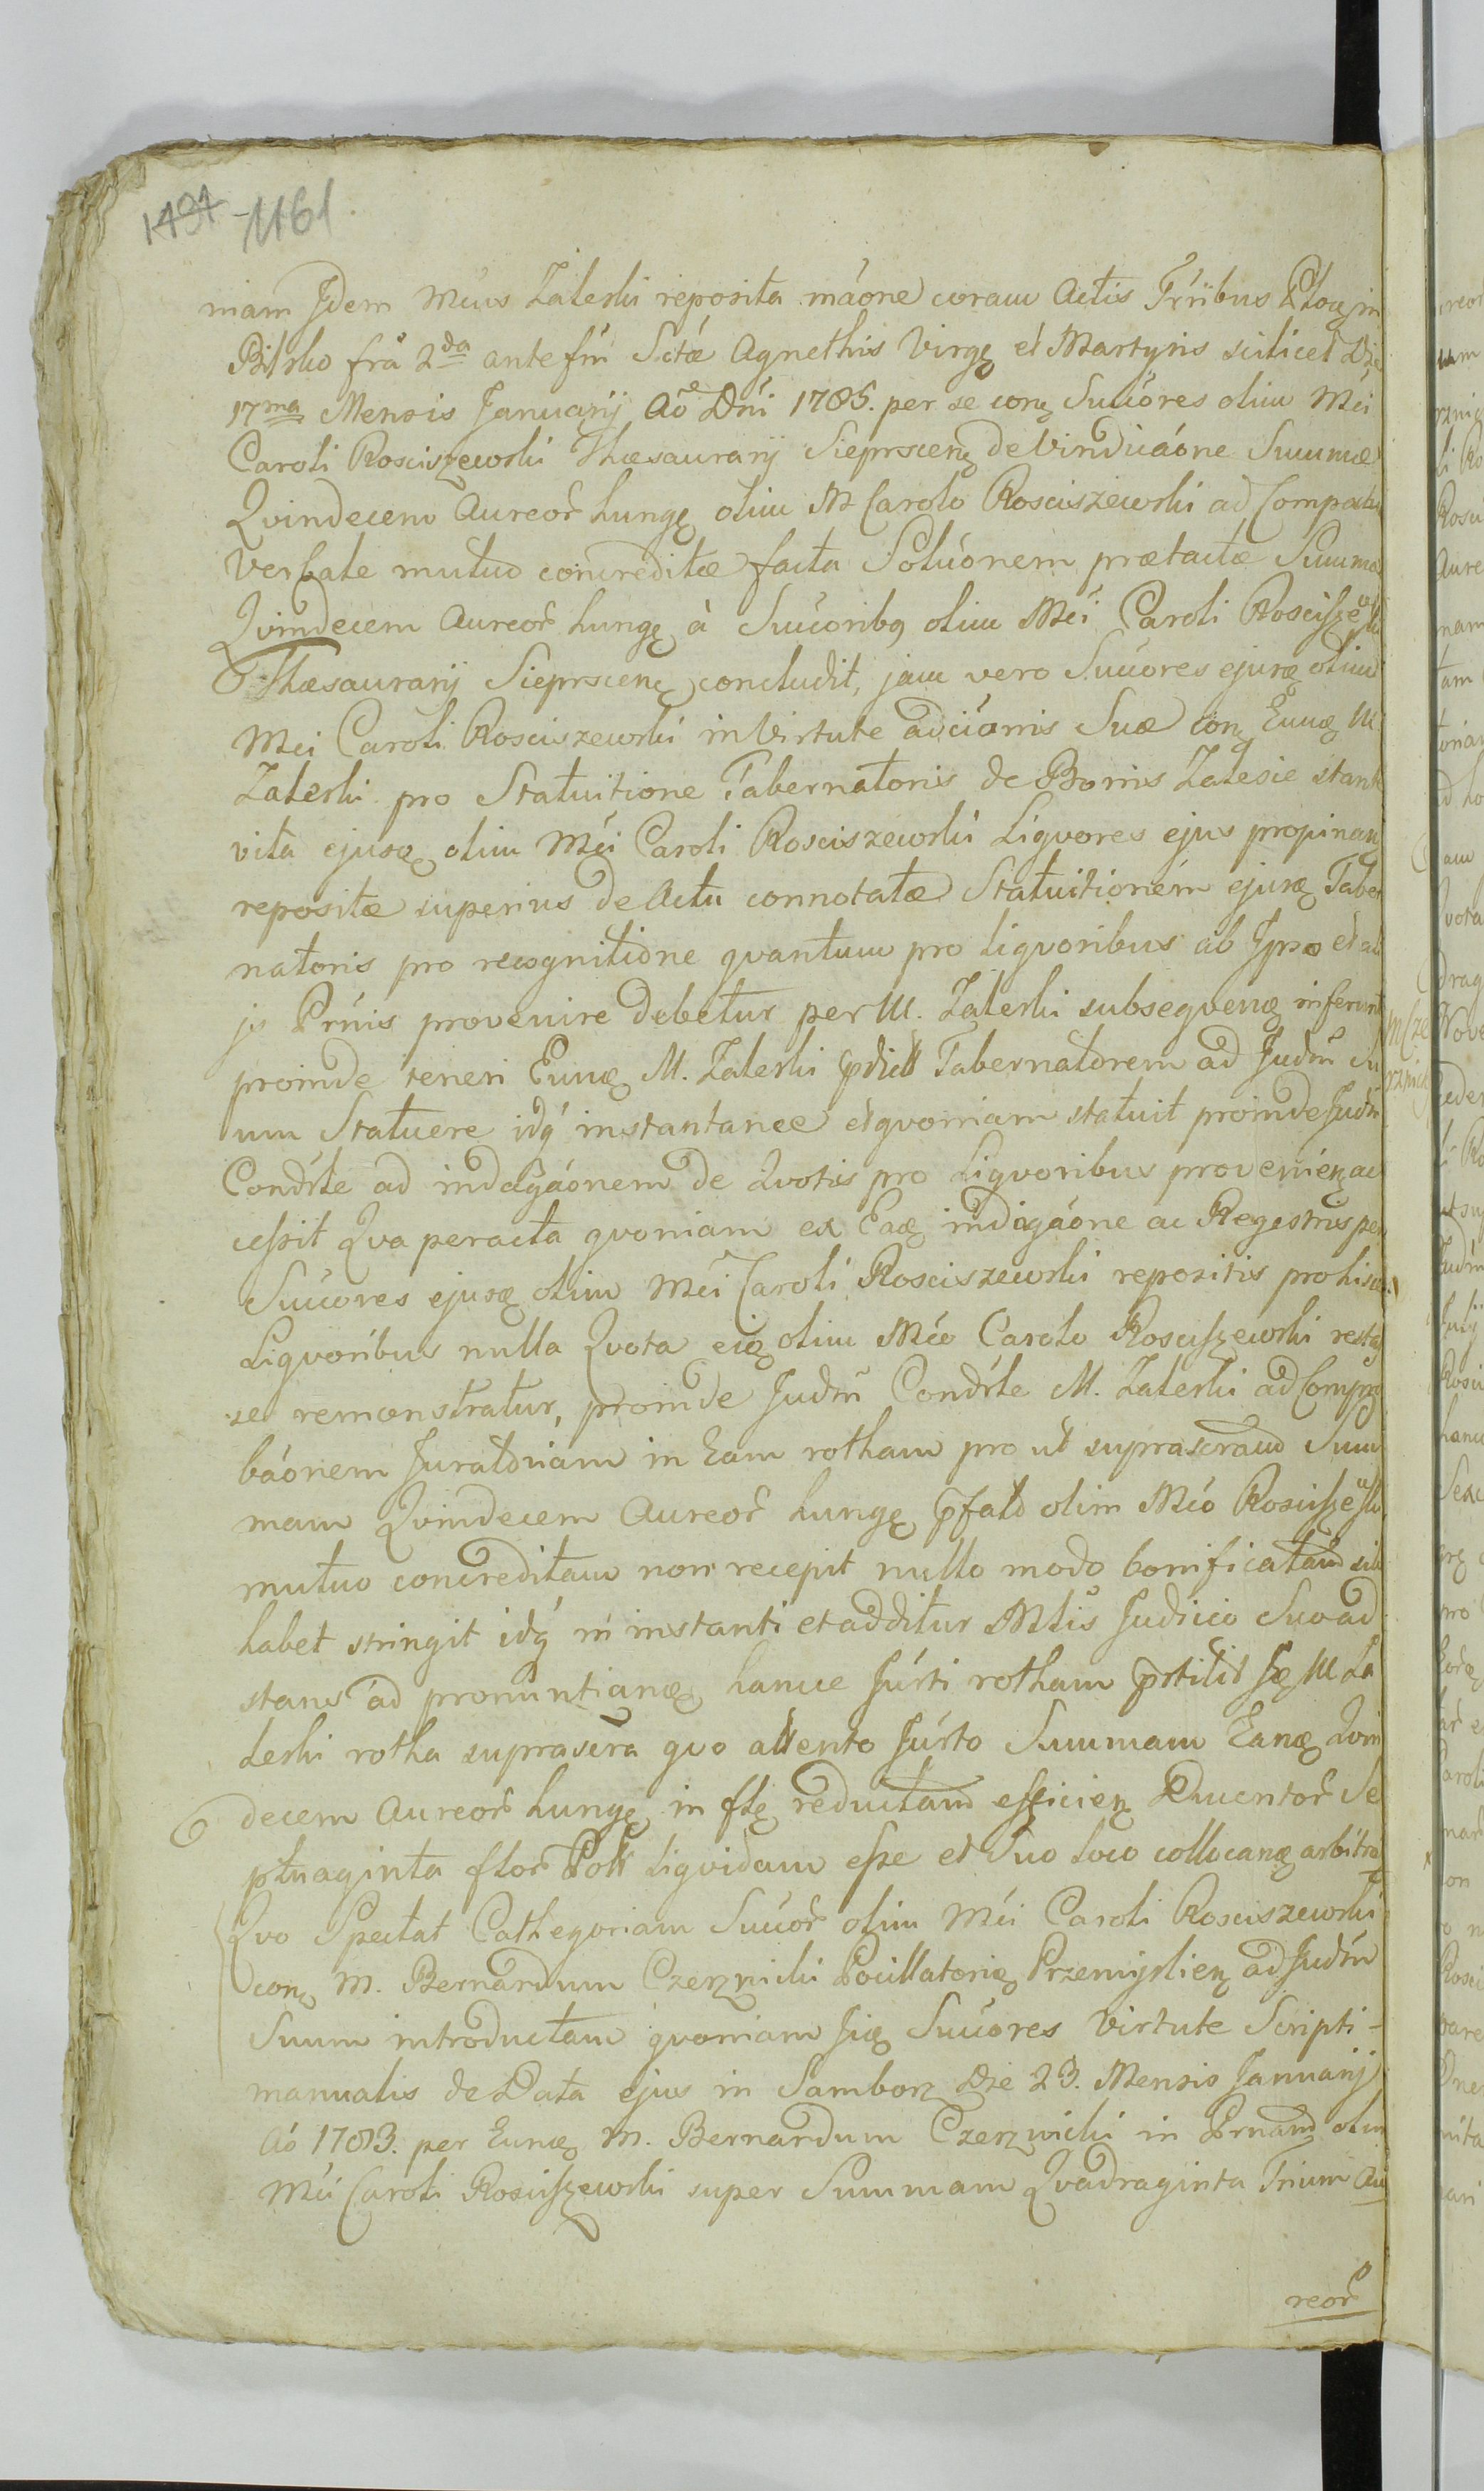 1434 1161.
niam Jdem Mcus Zaleski reposita máone coram Actis Trribus
Bilsko fra 2da ante fm Sctæ Agnethis Virgę et Martyris scilicet Die
17ma Mensis Januarij Aõ Dni 1785. per se conę Succóres olim Mci
Caroli Rosciszewski Thæsaurarij Sieprscenę de Vindicáone Summæ
Qvindecem Aureor̃ hungę olim M Carolo Rosciszewski ad
Verbale mutuo concreditæ facta Solúonem prætactæ Summæ
Qvindecem Aureor̃ hungę à Succoribꝯ olim Mci Caroli Rosciszewski
Thæsaurarij Sieprscenę concludit, jam vero Succores ejusꝗ olim
Mci Caroli Rosciszewski in Virtute adcióms Suæ conę Eunꝗ M
Zaleski pro Statuitione Tabernatoris de Bonis Zalesie stante
vita ejusꝗ olim Mci Caroli Rosciszewski Liqvores ejus propinan
repositæ superius de Actu connotatæ Statuitionem ejusꝗ Taber
natoris pro recognitione qvantum pro liqvoribus ab Jpso et ab
js Prńis provenire debetur per M. Zaleski subseqvenę inferunt
proinde teneri Eunꝗ M. Zaleski pdict Tabernatorem ad Judm su
um Statuere idq́ instantanee et qvoniam statuit proinde Judm
Condrle ad indagáonem de Qvotis pro Liqvoribus provenienę ac
cessit Qva peracta qvoniam ex Eaꝗ indagáone ac Regestris per
Succores ejusꝗ olim Mci Caroli Rosciszewski repositis pro hisce
Liqvoribus nulla Qvota eiꝗ olim Mco Carolo Rosciszewski
se remonstratur, proinde Judm Condrle M. Zaleski ad Compro
báonem Juratoriam in Eam rotham pro ut suprascram Sum
mam Qvindecem Aureor̃ hungę pfato olim Mco Rosciszewski
mutuo concreditam non recepit nullo modo bonificatam sibi
habet stringit idq́ in instanti et additur Mlis Judicio Suo ad
stans ad pronuntianꝗ hance Jurti rotham prtitit Jꝗ M Za
leski rotha suprascra qvo attento Jurto Summam Eanꝗ Qvin
decem Aureor̃ hungę in flę reductam efficienę Ducentor̃ Se
ptuaginta flor̃ Poll liqvidam esse et Suo loco collocanꝗ arbitra
Qvo Spectat Cathegoriam Succor̃ olim Mci Caroli Rosciszewski
conę M. Bernardum Czerznicki Pocillatorię Przemyslienę ad Judm
Suum introductam qvoniam Jiꝗ Succores Virtute Scripti-
manualis de Data ejus in Samborz Die 23. Mensis Januarij
Aó 1783. per Eunꝗ M. Bernardum Czerznicki in Prnam olim
Mci Caroli Rosciszewski super Summam Qvadraginta Trium Au
reor̃